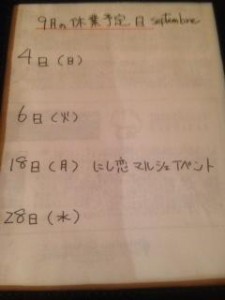 9月の休業予定日 septembre
4日（日）
6日（火）
18日（月）にし恋マルシェイベント
28日（水）